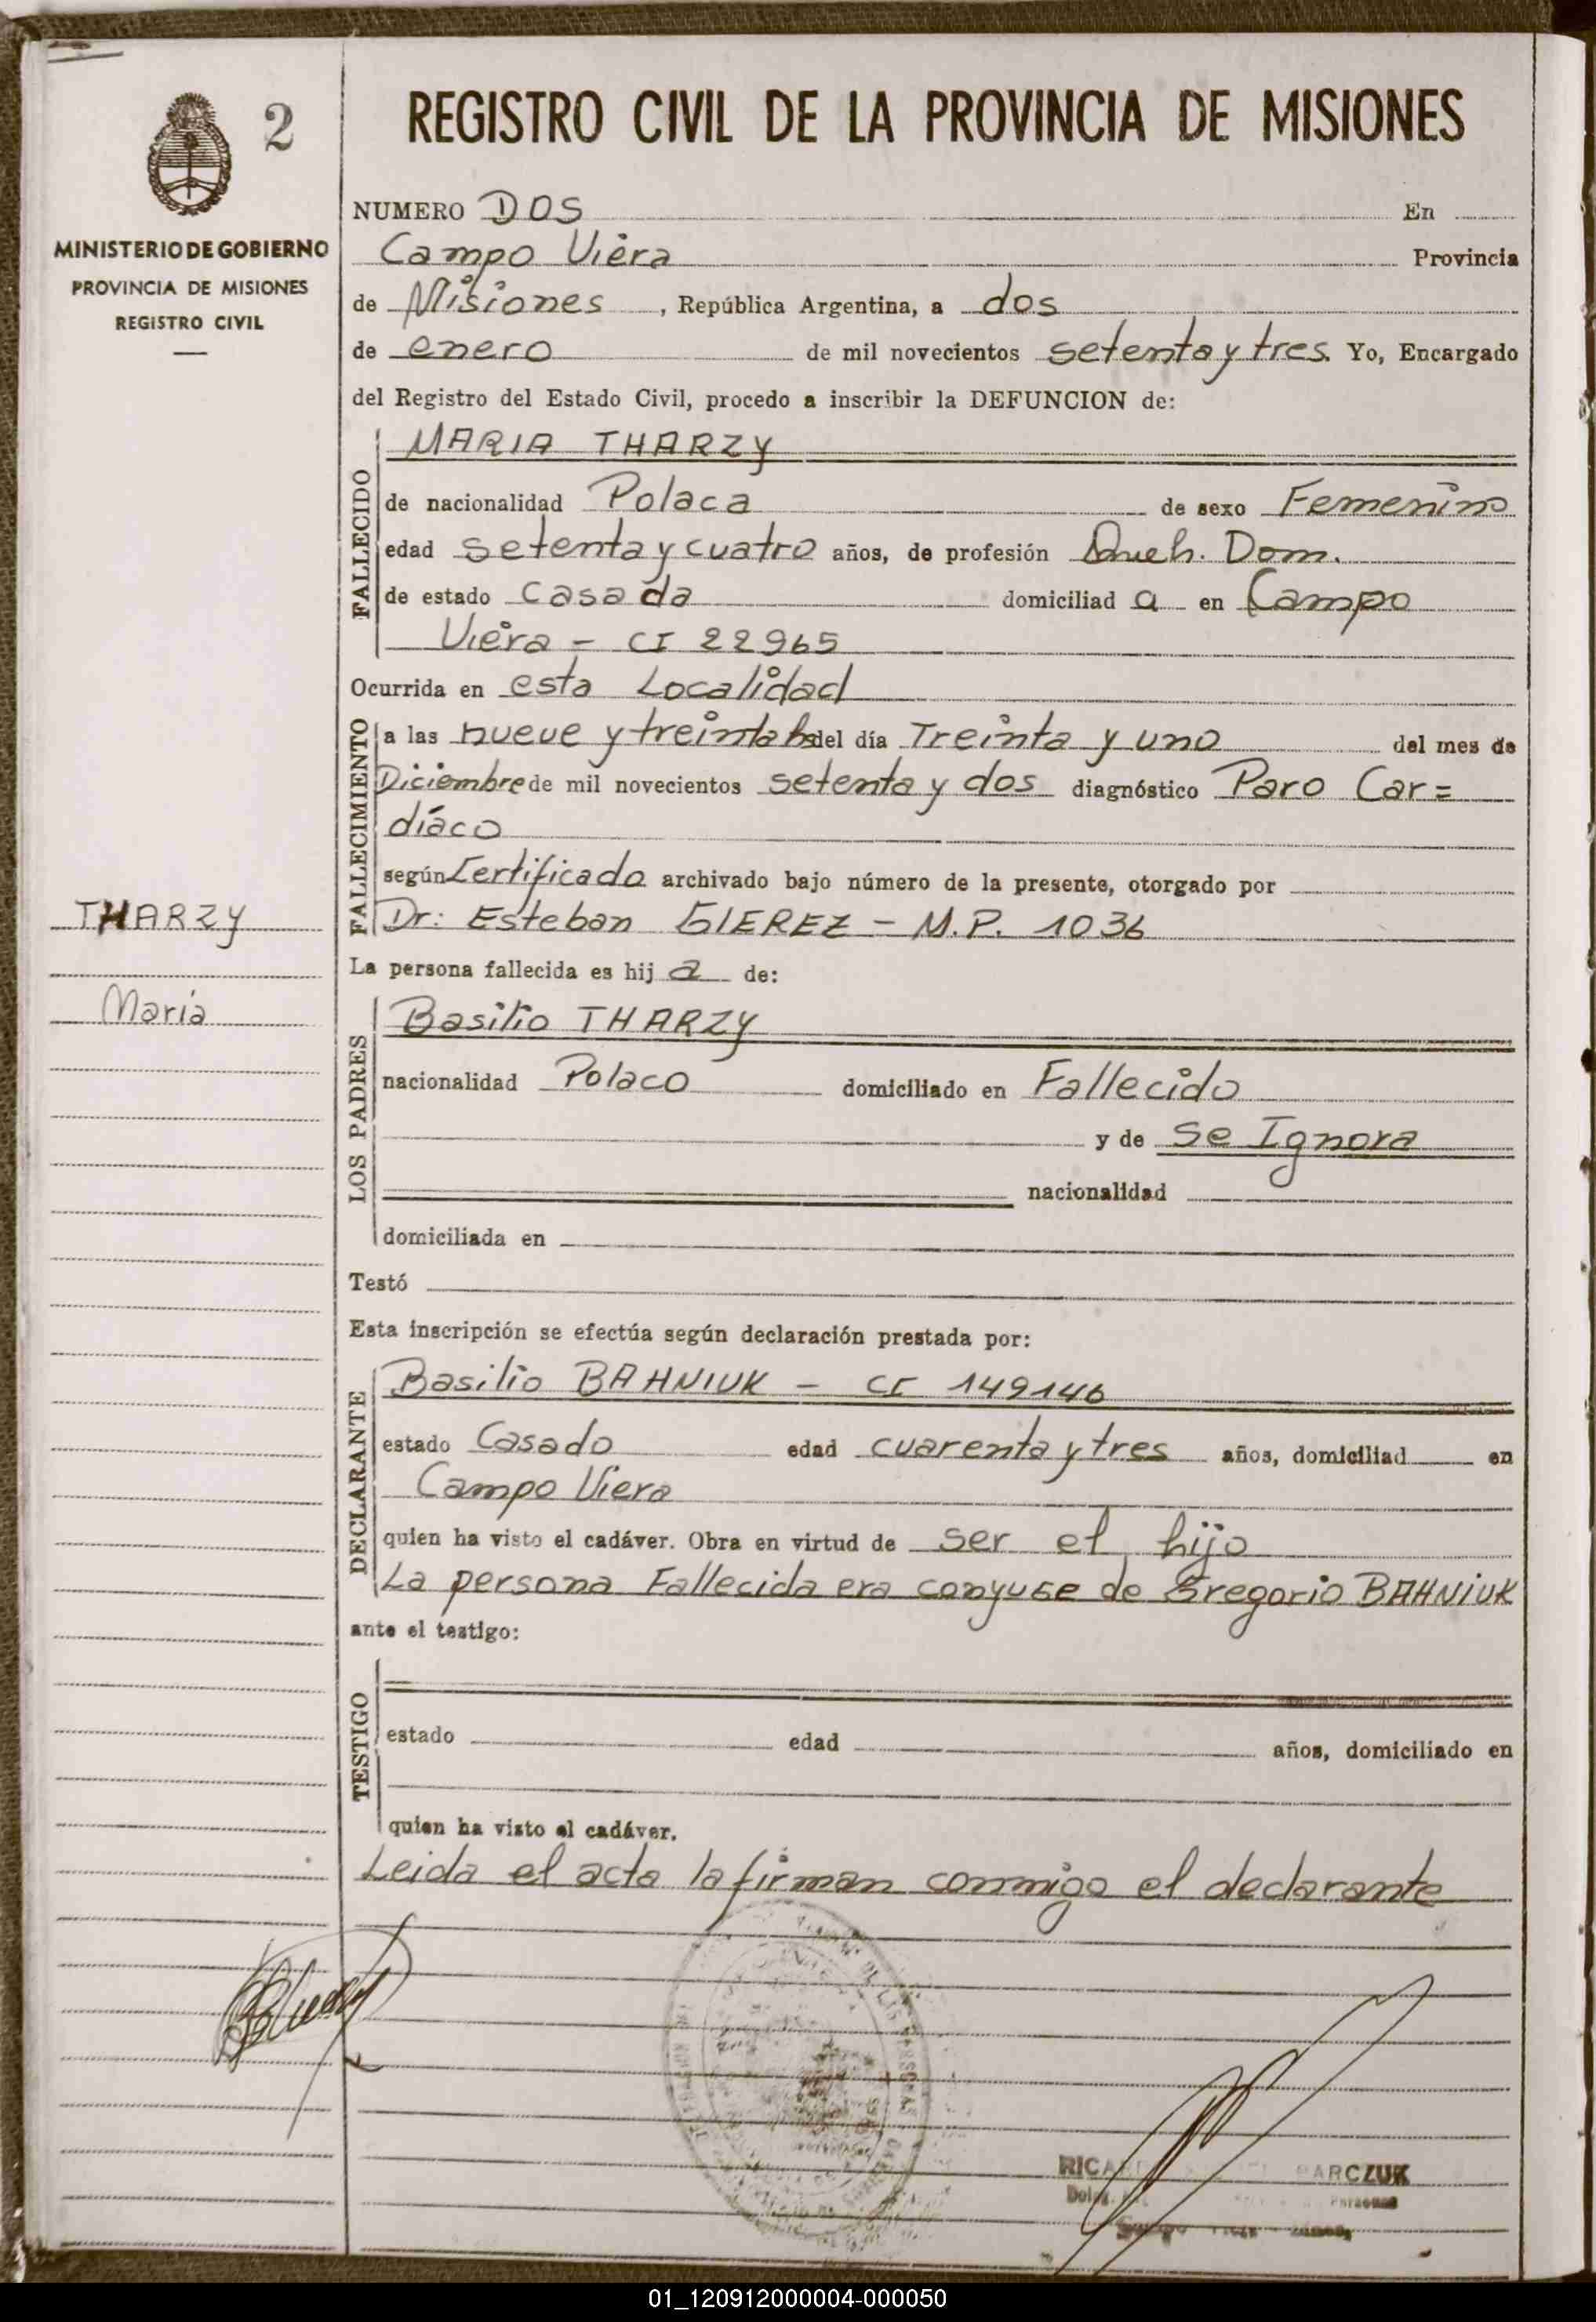 2
MINISTERIO DE GOBIERNO
PROVINCIA DE MISIONES
REGISTRO CIVIL
THARZY
Maria
REGISTRO CIVIL DE LA PROVINCIA DE MISIONES
NUMERO DOS En
Campo Viera Provincia
de Misiones, República Argentina, a dos
de enero de mil novecientos setenta y tres. Yo, Encargado
del Registro del Estado Civil, procedo a inscribir la DEFUNCION de:
FALLECIDO
MARIA THARZY
de nacionalidad Polaca de sexo Femenino
edad setenta y cuatro años, de profesión Queh. Dom.
de estado casada domiciliad a en Campo
Viera - CI 22965
Ocurrida en esta Localidad
FALLECIMIENTO
a las nueve y treinta hs del día Treinta y uno del mes de
Diciembre de mil novecientos setenta y dos diagnóstico Paro Car=
díaco
según Certificado archivado bajo número de la presente, otorgado por
Dr: Esteban GIEREZ - M.P. 1036
La persona fallecida es hij a de:
LOS PADRES
Basilio THARZY
nacionalidad Polaco domiciliado en Fallecido
y de Se Ignora
nacionalidad
domiciliada en
Testó
Esta inscripción se efectúa según declaración prestada por:
DECLARANTE
Basilio BAHNIUK - CI 149146
estado Casado edad cuarenta y tres años, domiciliad en
Campo Viera
quien ha visto el cadáver. Obra en virtud de ser el hijo
La persona Fallecida era conyuge de Gregorio BAHNIUK
ante el testigo:
TESTIGO
estado edad años, domiciliado en
quien ha visto el cadáver.
Leida el acta la firman conmigo el declarante
01_120912000004-000050